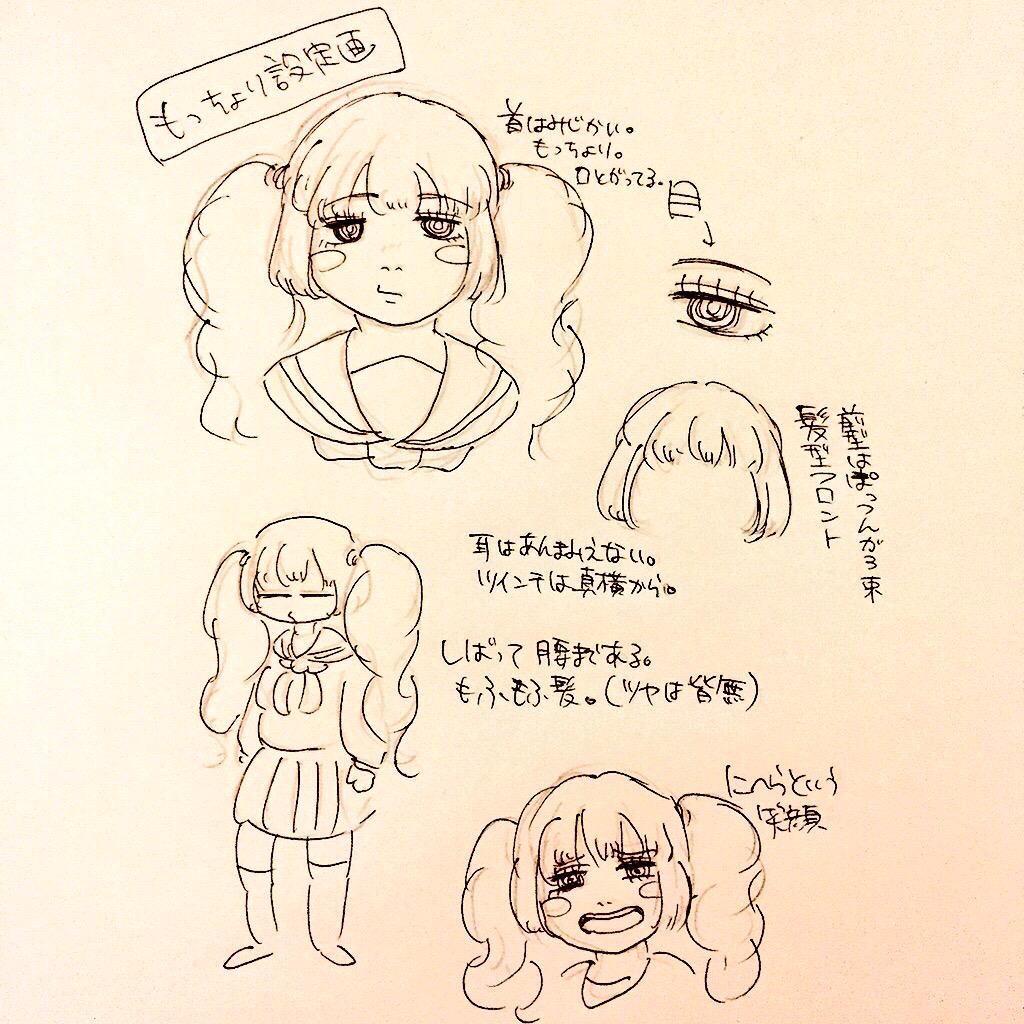 もっちょり設定画
首はみじかい。
もっちょり。
口とがってる。
目
前髪はぱっつんが3束
髪型フロント
耳はあんまみえない。
ツインテは真横から。
しばって腰まである。
もふもふ髪。(ツヤは皆無)
にへらという
笑顔